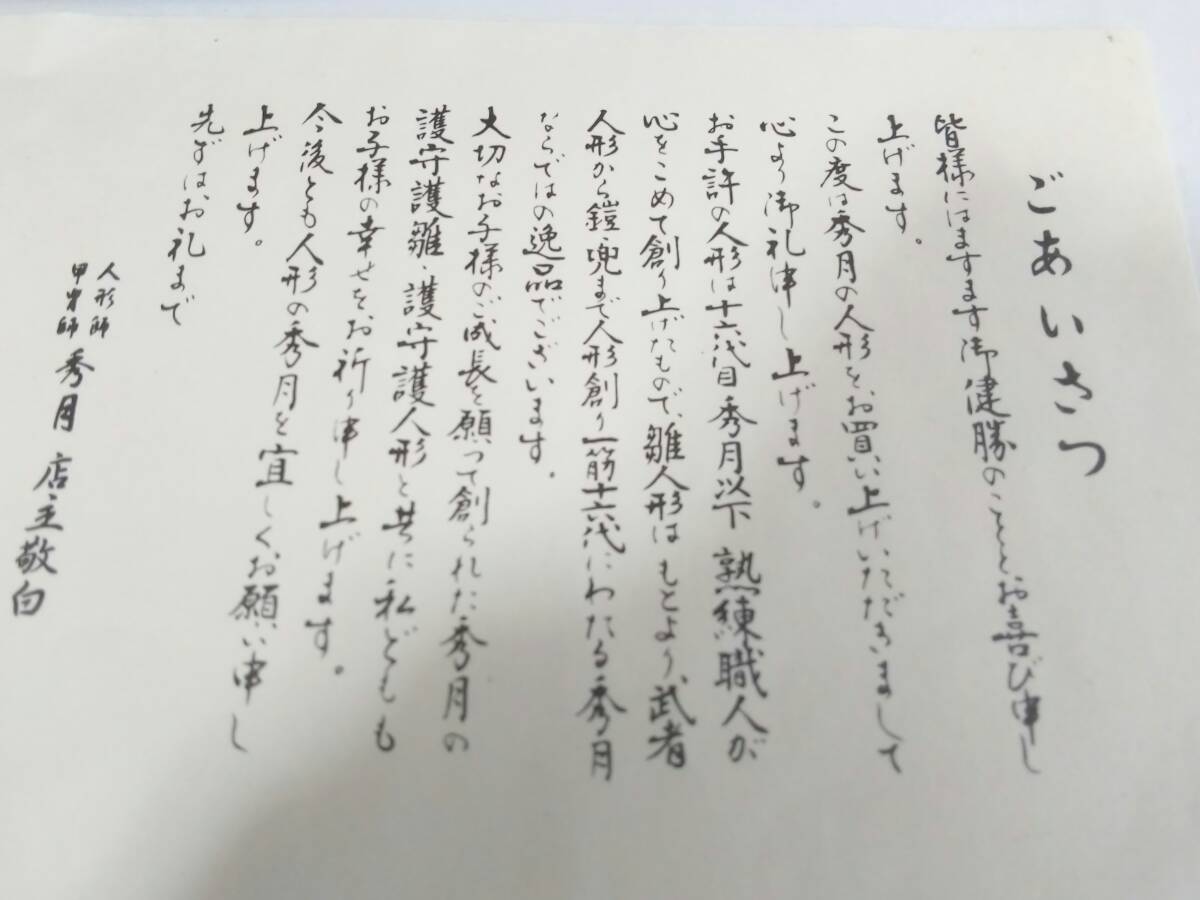 ごあいさつ
皆様にはますます御健勝のこととお喜び申し
上げます。
この度は秀月の人形を、お買い上げいただきまして
心より御礼申し上げます。
お手許の人形は十六代目秀月以下 熟練職人が
心をこめて創り上げたもので、雛人形は もとより、武者
人形から鎧兜まで人形創り一筋十六代にわたる秀月
ならではの逸品でございます。
大切なお子様のご成長を願って創られた秀月の
護守護雛・護守護人形と共に私どもも
お子様の幸せをお祈り申し上げます。
今後とも人形の秀月を宜しくお願い申し
上げます。
先ずはお礼まで
人形師
甲冑師 秀月 店主敬白